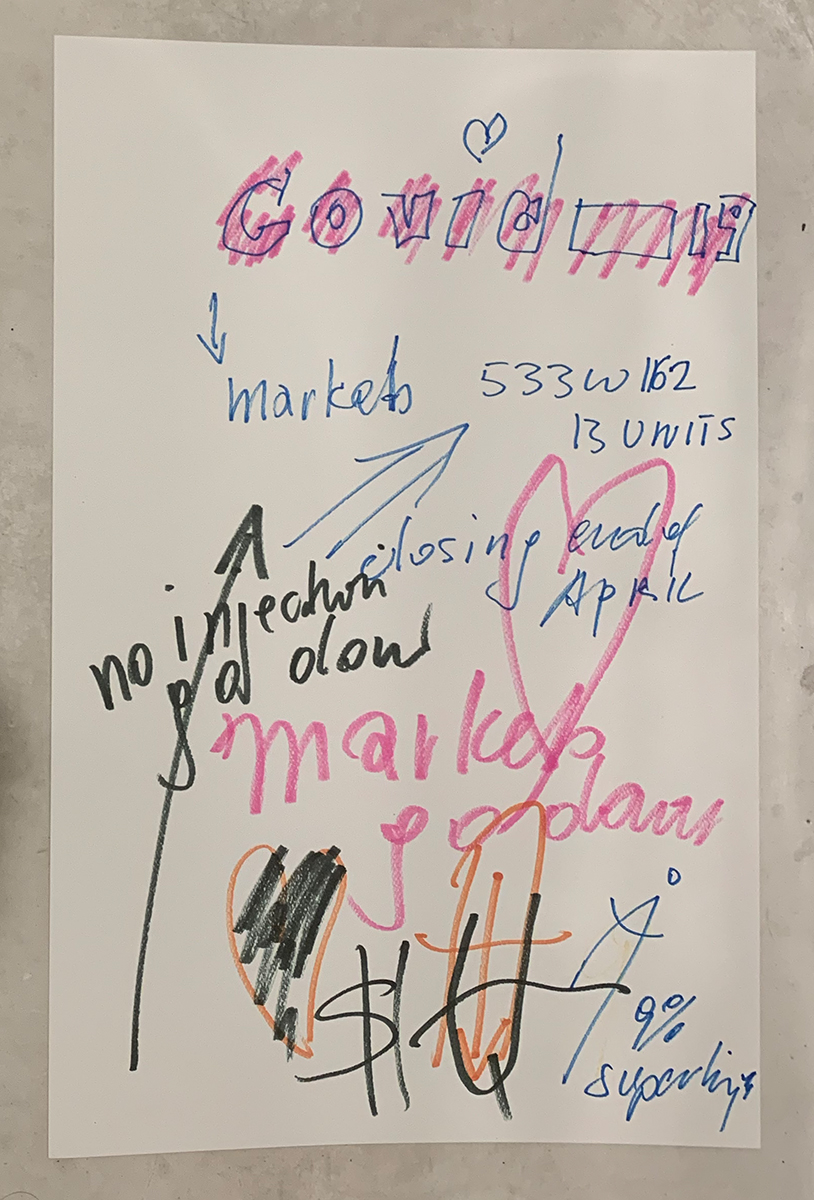 Covid-19
markets
533W 162
13 UNITS
closing end of
April
no injection
go down
markets
go down
$
9%